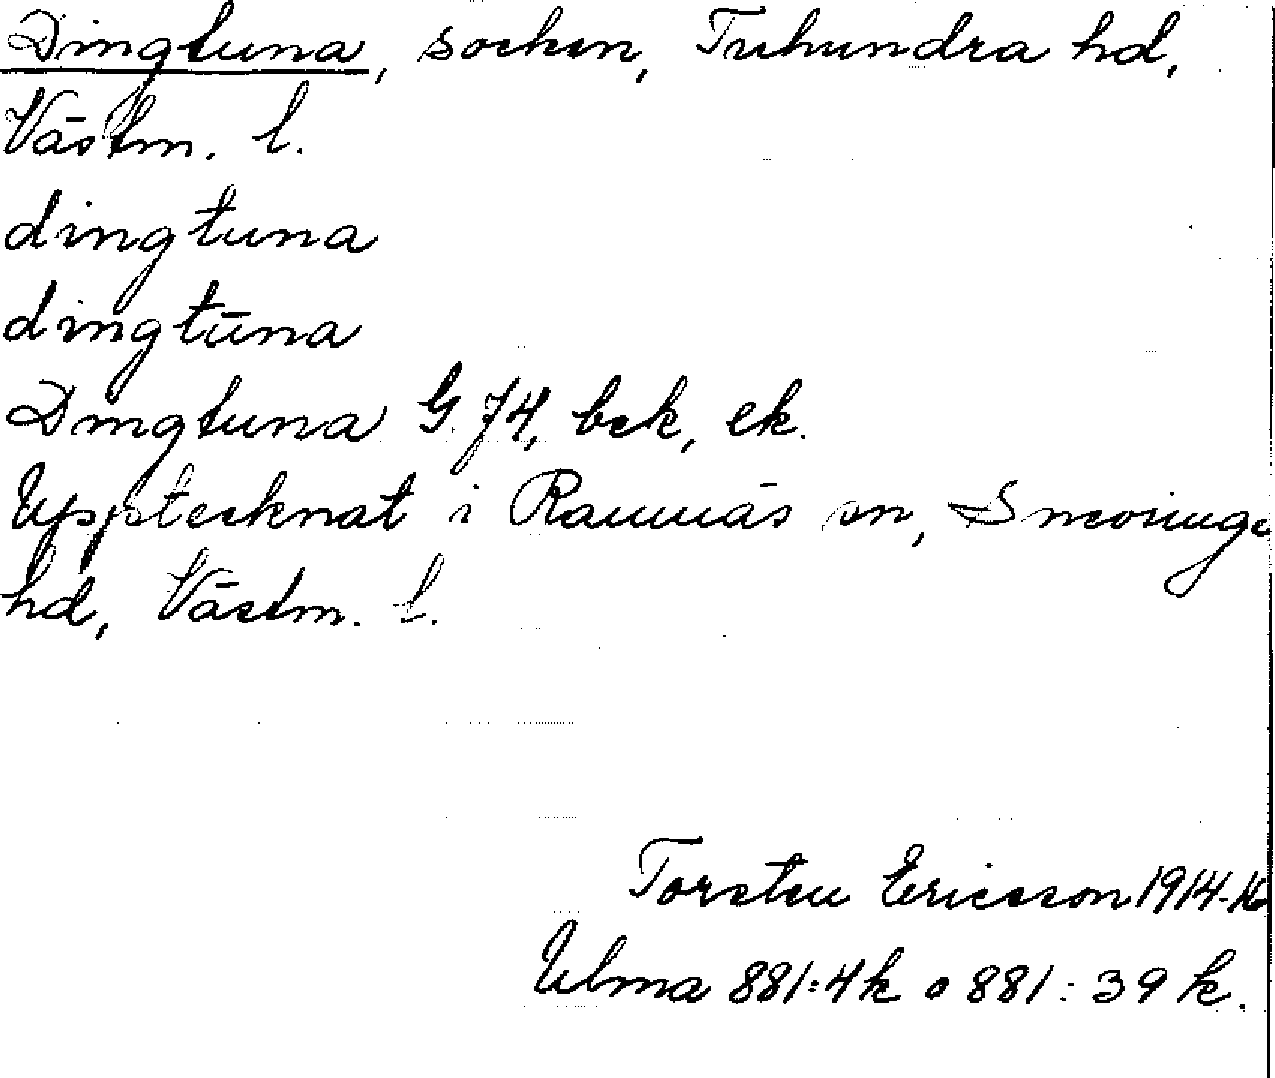 Dingtuna, socken, Tuhundra hd,
Västm. l.
dingtuna
dingtūna
Dingtuna G. 74, bek, ek.
Upptecknat i Ramnäs sn, Snevringe
hd, Västm. l.
Torsten Ericsson 1914-16
Ulma 881:4k o 881:39k.